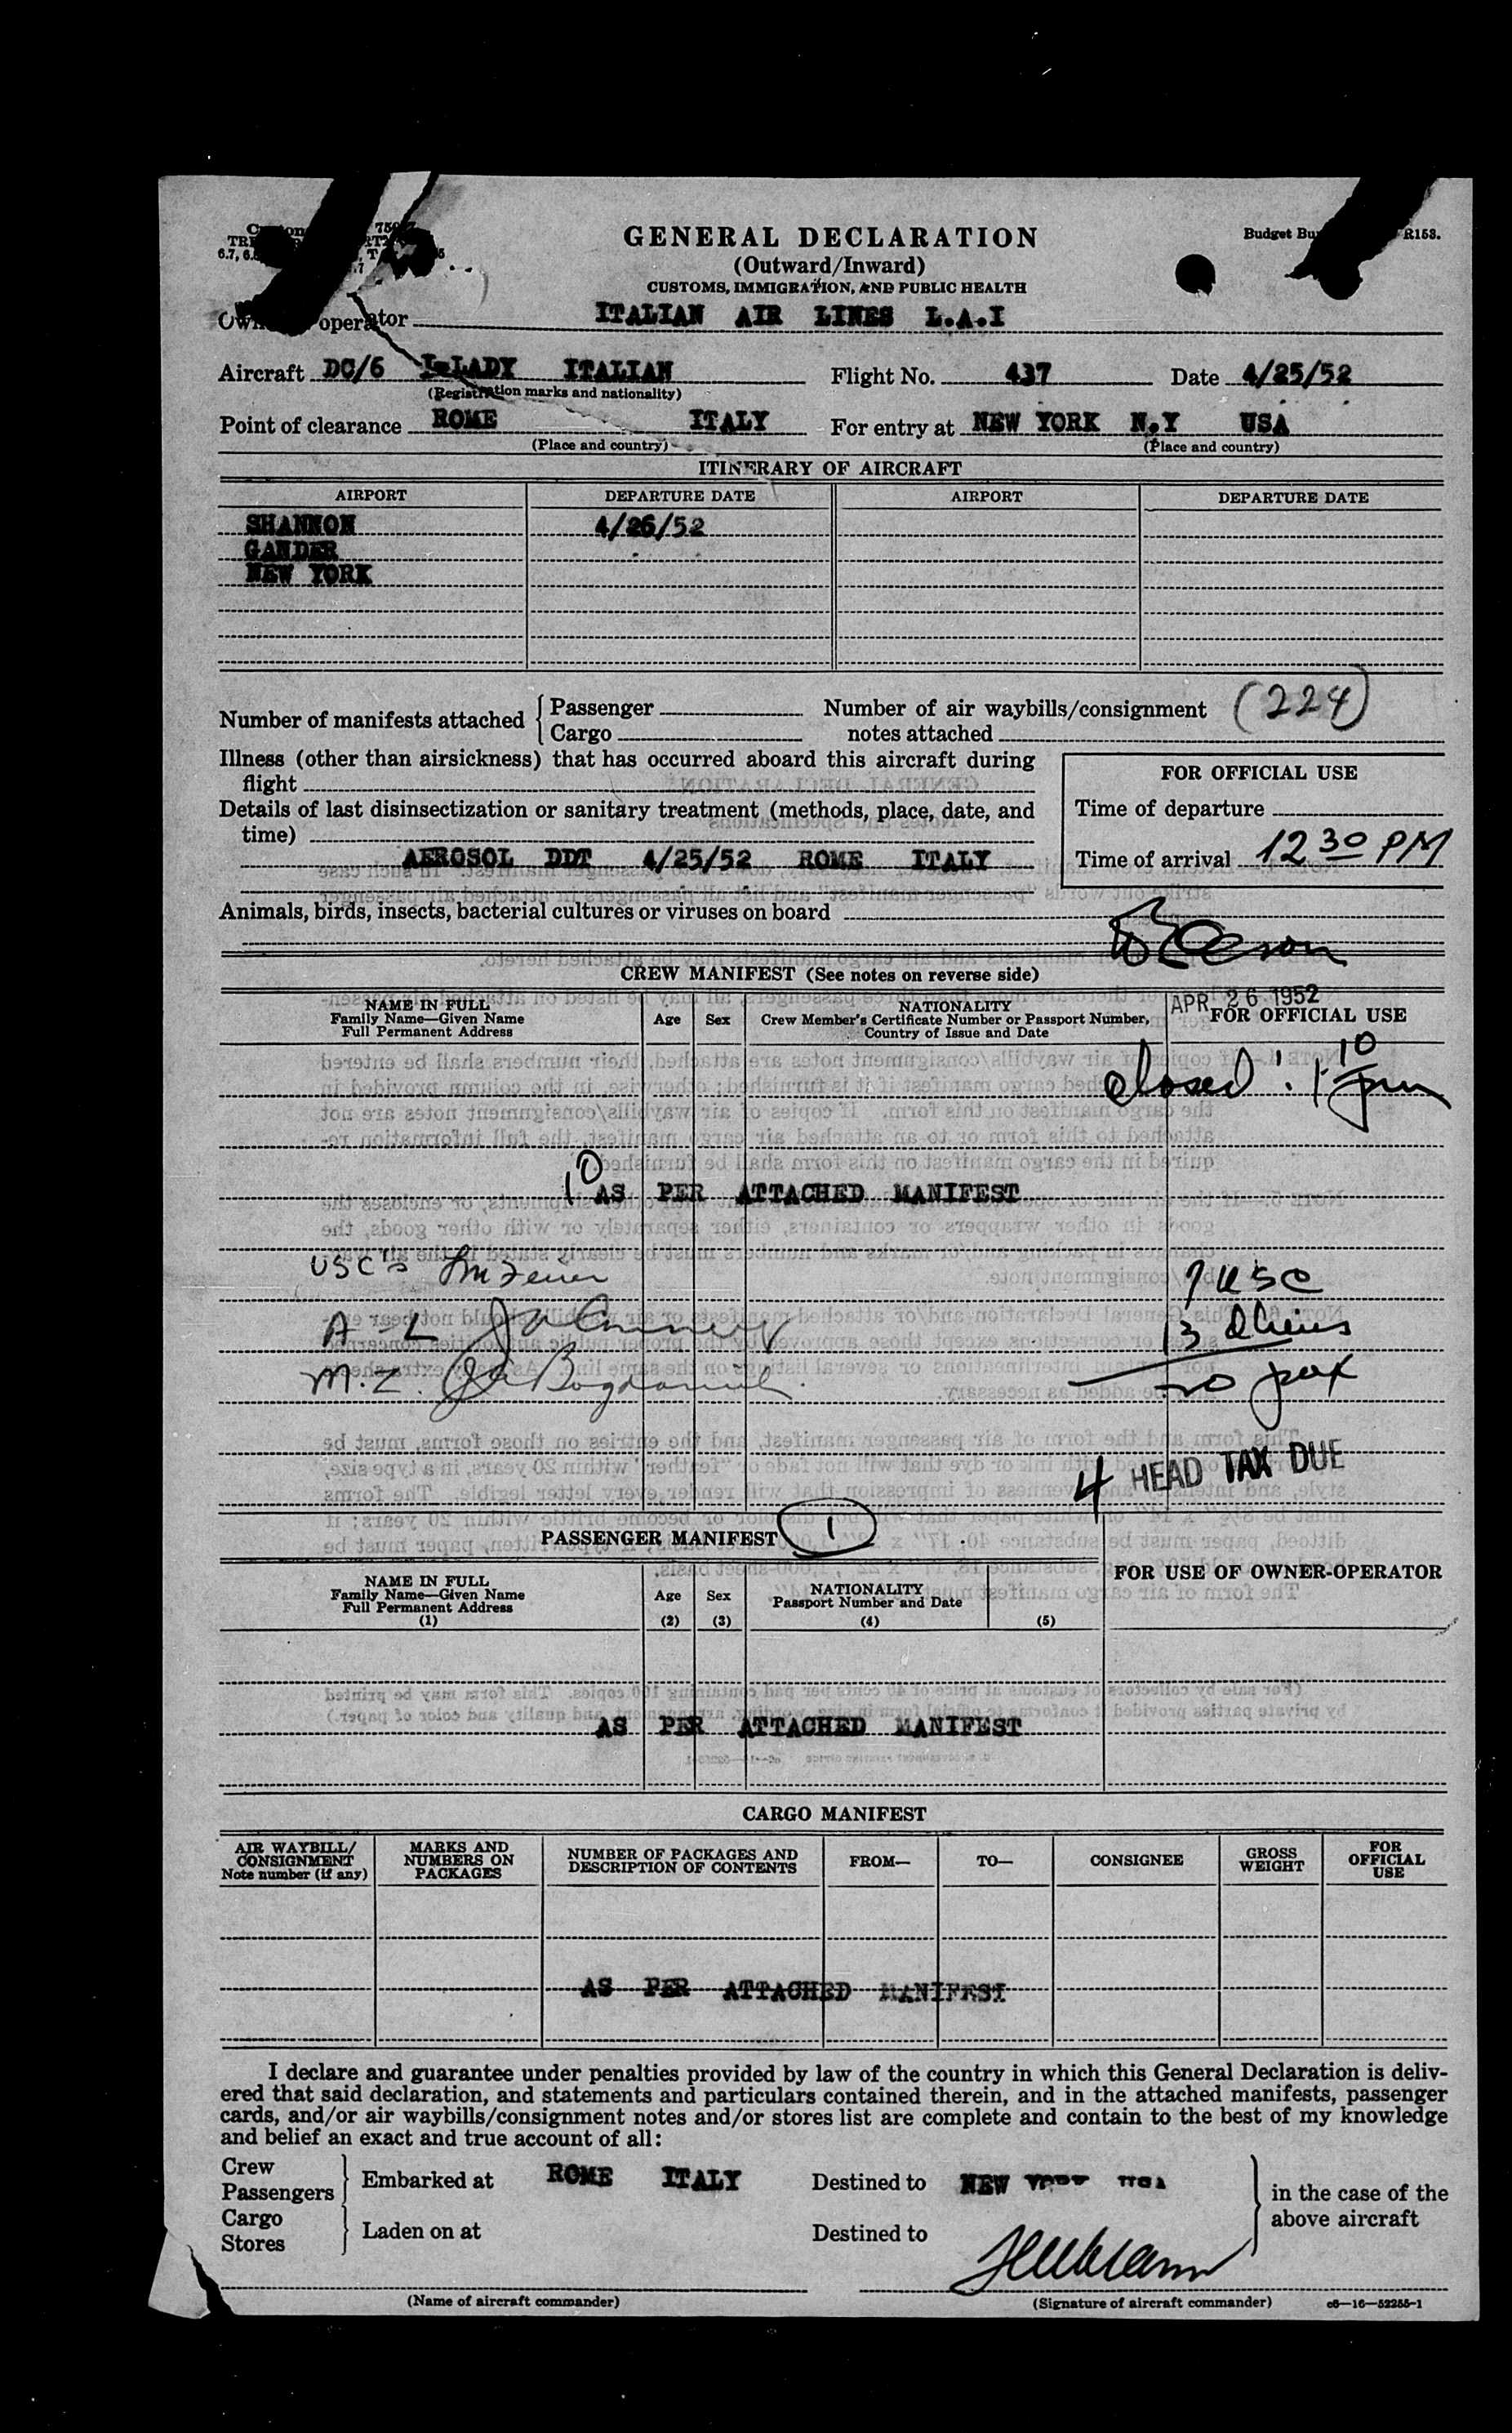 GENERAL DECLARATION
(Outward/Inward)
CUSTOMS, IMMIGRATION, AND PUBLIC HEALTH
Budget R153.
operator ITALIAN AIR LINES L.A.I
Aircraft DC/6 I-LADY ITALIAN Flight No. 437 Date 4/25/52
(Registration marks and nationality)
Point of clearance ROME ITALY For entry at NEW YORK N.Y USA
(Place and country) (Place and country)
ITINERARY OF AIRCRAFT
AIRPORT DEPARTURE DATE AIRPORT DEPARTURE DATE
SHANNON 4/26/52
GANDER
NEW YORK
(224)
Number of manifests attached { Passenger Number of air waybills/consignment
Cargo notes attached
Illness (other than airsickness) that has occurred aboard this aircraft during
flight
FOR OFFICIAL USE
Details of last disinsectization or sanitary treatment (methods, place, date, and
time)
Time of departure
AEROSOL DDT 4/25/52 ROME ITALY
Time of arrival 12 30 PM
Animals, birds, insects, bacterial cultures or viruses on board
CREW MANIFEST (See notes on reverse side)
NAME IN FULL
Family Name—Given Name
Full Permanent Address
Age Sex
NATIONALITY
Crew Member's Certificate Number or Passport Number,
Country of Issue and Date
APR 26 1952
FOR OFFICIAL USE
closed : 1 10 pm
10 AS PER ATTACHED MANIFEST
USC's
7 USC
A-L
13 Aliens
M.Z.
20 pax
4 HEAD TAX DUE
PASSENGER MANIFEST 1
NAME IN FULL
Family Name—Given Name
Full Permanent Address
(1)
Age
(2)
Sex
(3)
NATIONALITY
Passport Number and Date
(4)
(5)
FOR USE OF OWNER-OPERATOR
AS PER ATTACHED MANIFEST
CARGO MANIFEST
AIR WAYBILL/
CONSIGNMENT
Note number (if any)
MARKS AND
NUMBERS ON
PACKAGES
NUMBER OF PACKAGES AND
DESCRIPTION OF CONTENTS
FROM—
TO—
CONSIGNEE
GROSS
WEIGHT
FOR
OFFICIAL
USE
AS PER ATTACHED MANIFEST
I declare and guarantee under penalties provided by law of the country in which this General Declaration is deliv-
ered that said declaration, and statements and particulars contained therein, and in the attached manifests, passenger
cards, and/or air waybills/consignment notes and/or stores list are complete and contain to the best of my knowledge
and belief an exact and true account of all:
Crew
Passengers } Embarked at ROME ITALY Destined to NEW YORK USA
Cargo
Stores } Laden on at Destined to
in the case of the
above aircraft
(Name of aircraft commander) (Signature of aircraft commander) c6—16—52255-1